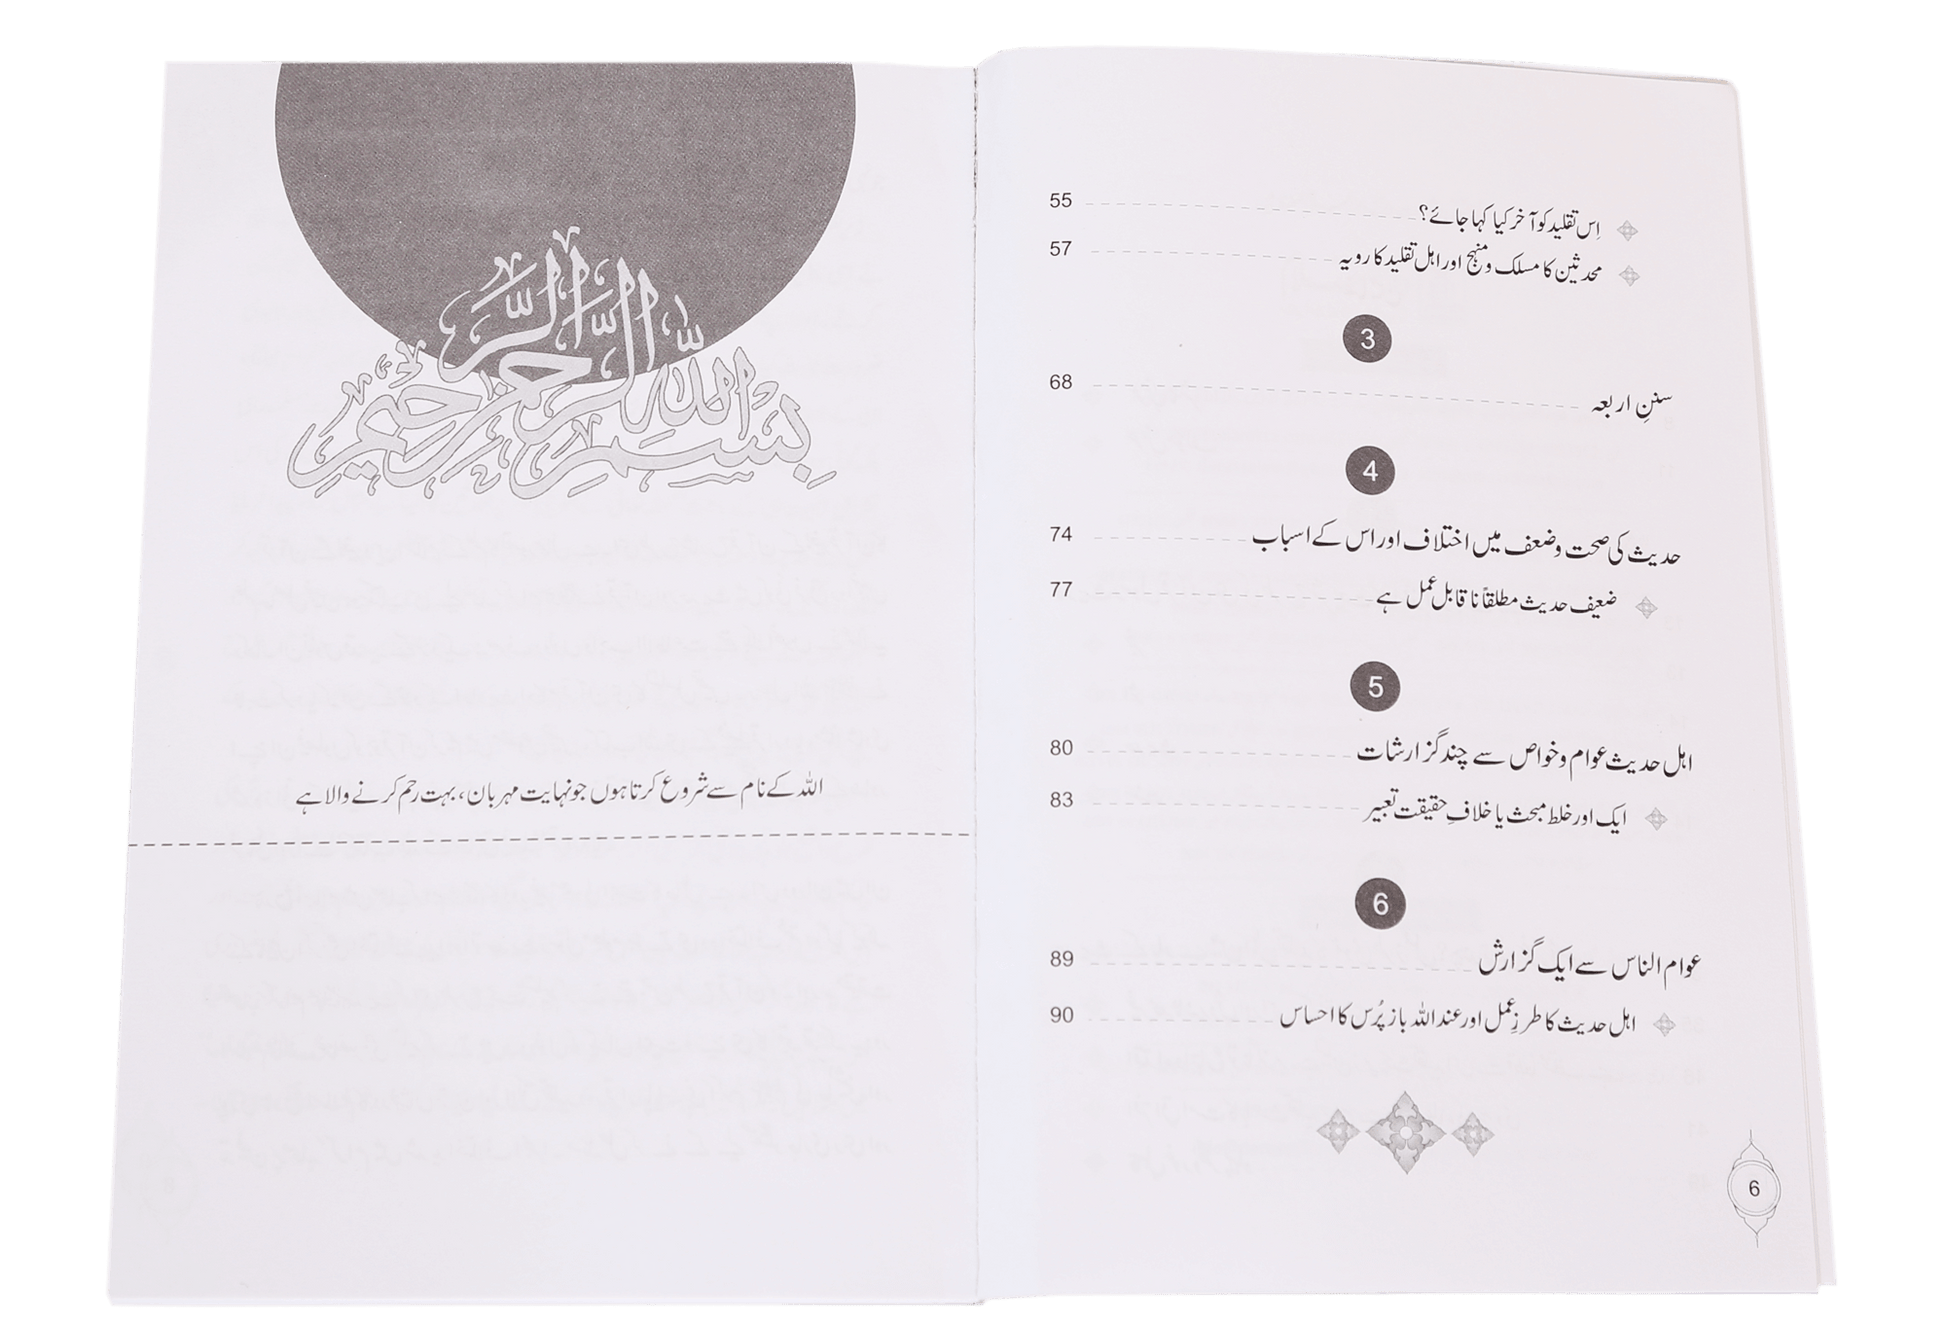 اِس تقلید کو آخر کیا کہا جائے؟ 55
محدثین کا مسلک و منہج اور اہل تقلید کا رویہ 57
3
سننِ اربعہ 68
4
حدیث کی صحت و ضعف میں اختلاف اور اس کے اسباب 74
ضعیف حدیث مطلقاً نا قابل عمل ہے 77
5
اہل حدیث عوام و خواص سے چند گزارشات 80
ایک اور خلط مبحث یا خلافِ حقیقت تعبیر 83
6
عوام الناس سے ایک گزارش 89
اہل حدیث کا طرزِ عمل اور عند اللہ باز پُرس کا احساس 90
6
بِسْمِ اللّٰهِ الرَّحْمٰنِ الرَّحِيْمِ
اللہ کے نام سے شروع کرتا ہوں جو نہایت مہربان، بہت رحم کرنے والا ہے